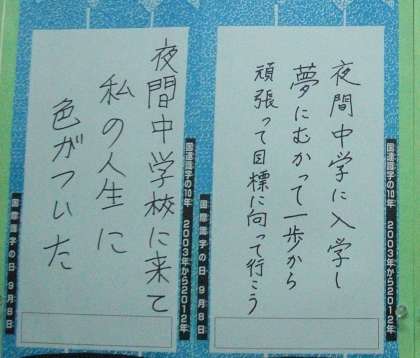 夜間中学に入学し
夢にむかって一歩から
頑張って目標に向って行こう
国連識字の10年 2003年から2012年
国際識字の日 9月8日
夜間中学校に来て
私の人生に
色がついた
国連識字の10年 2003年から2012年
国際識字の日 9月8日